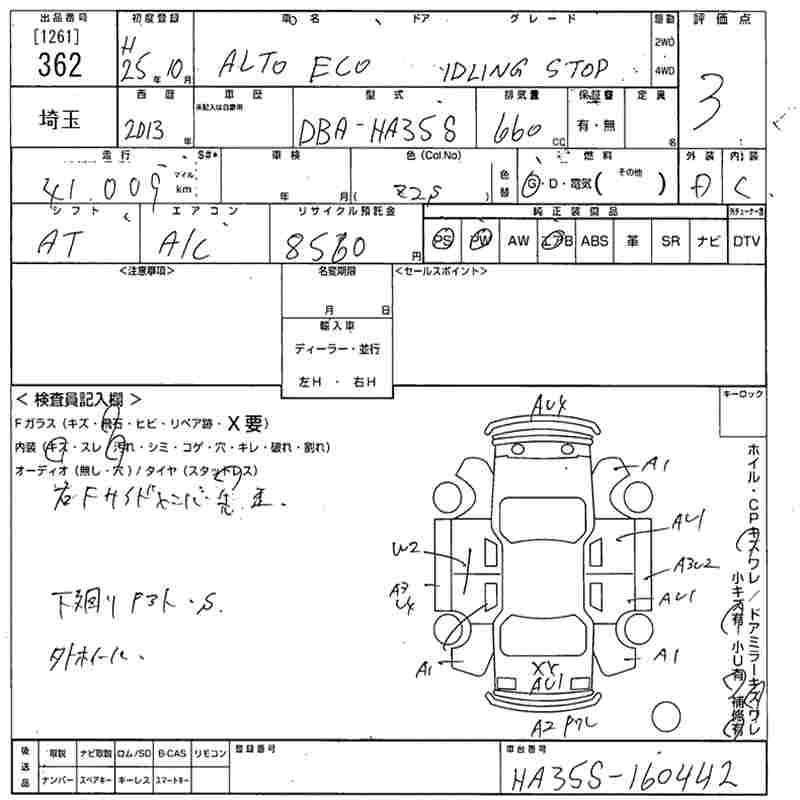 出品番号 初度登録 車名 ドア グレード 駆動 評価点
[1261]
362
H
25年10月
ALTO ECO IDLING STOP
2WD
4WD
3
埼玉
西暦 車歴 型式 排気量 保証書 定員
未記入は自家用
2013年
DBA-HA35S
660cc
有・無
名
走行 S#* 車検 色(Col.No) 燃料 外装 内装
41.009 マイル km
年 月
( Z2S )
色替
G・D・電気( その他 )
A C
シフト エアコン リサイクル預託金 純正装備品 外チューナー含
AT A/C 8560円
PS PW AW エアB ABS 革 SR ナビ DTV
<注意事項> 名変期限 <セールスポイント>
月 日
輸入車
ディーラー・並行
左H ・ 右H
<検査員記入欄>
キーロック
Fガラス(キズ・飛石・ヒビ・リペア跡・X要)
内装(キズ・スレ・汚れ・シミ・コゲ・穴・キレ・破れ・割れ)
オーディオ(無し・穴)/タイヤ(スタッドレス)
右Fサイド
下廻り ・S.
外ホイール.
AU4
A1
AU1
W2
A3U2
A3
U4
AU1
A1
A1
XY
AU1
A2 ワレ
ホイル・CPキズワレ/ドアミラーキズワレ
小キズ有 小U有 補修有
後送品 取説 ナビ取説 ロム/SD B-CAS リモコン 登録番号 車台番号
ナンバー スペアキー キーレス スマートキー
HA35S-160442